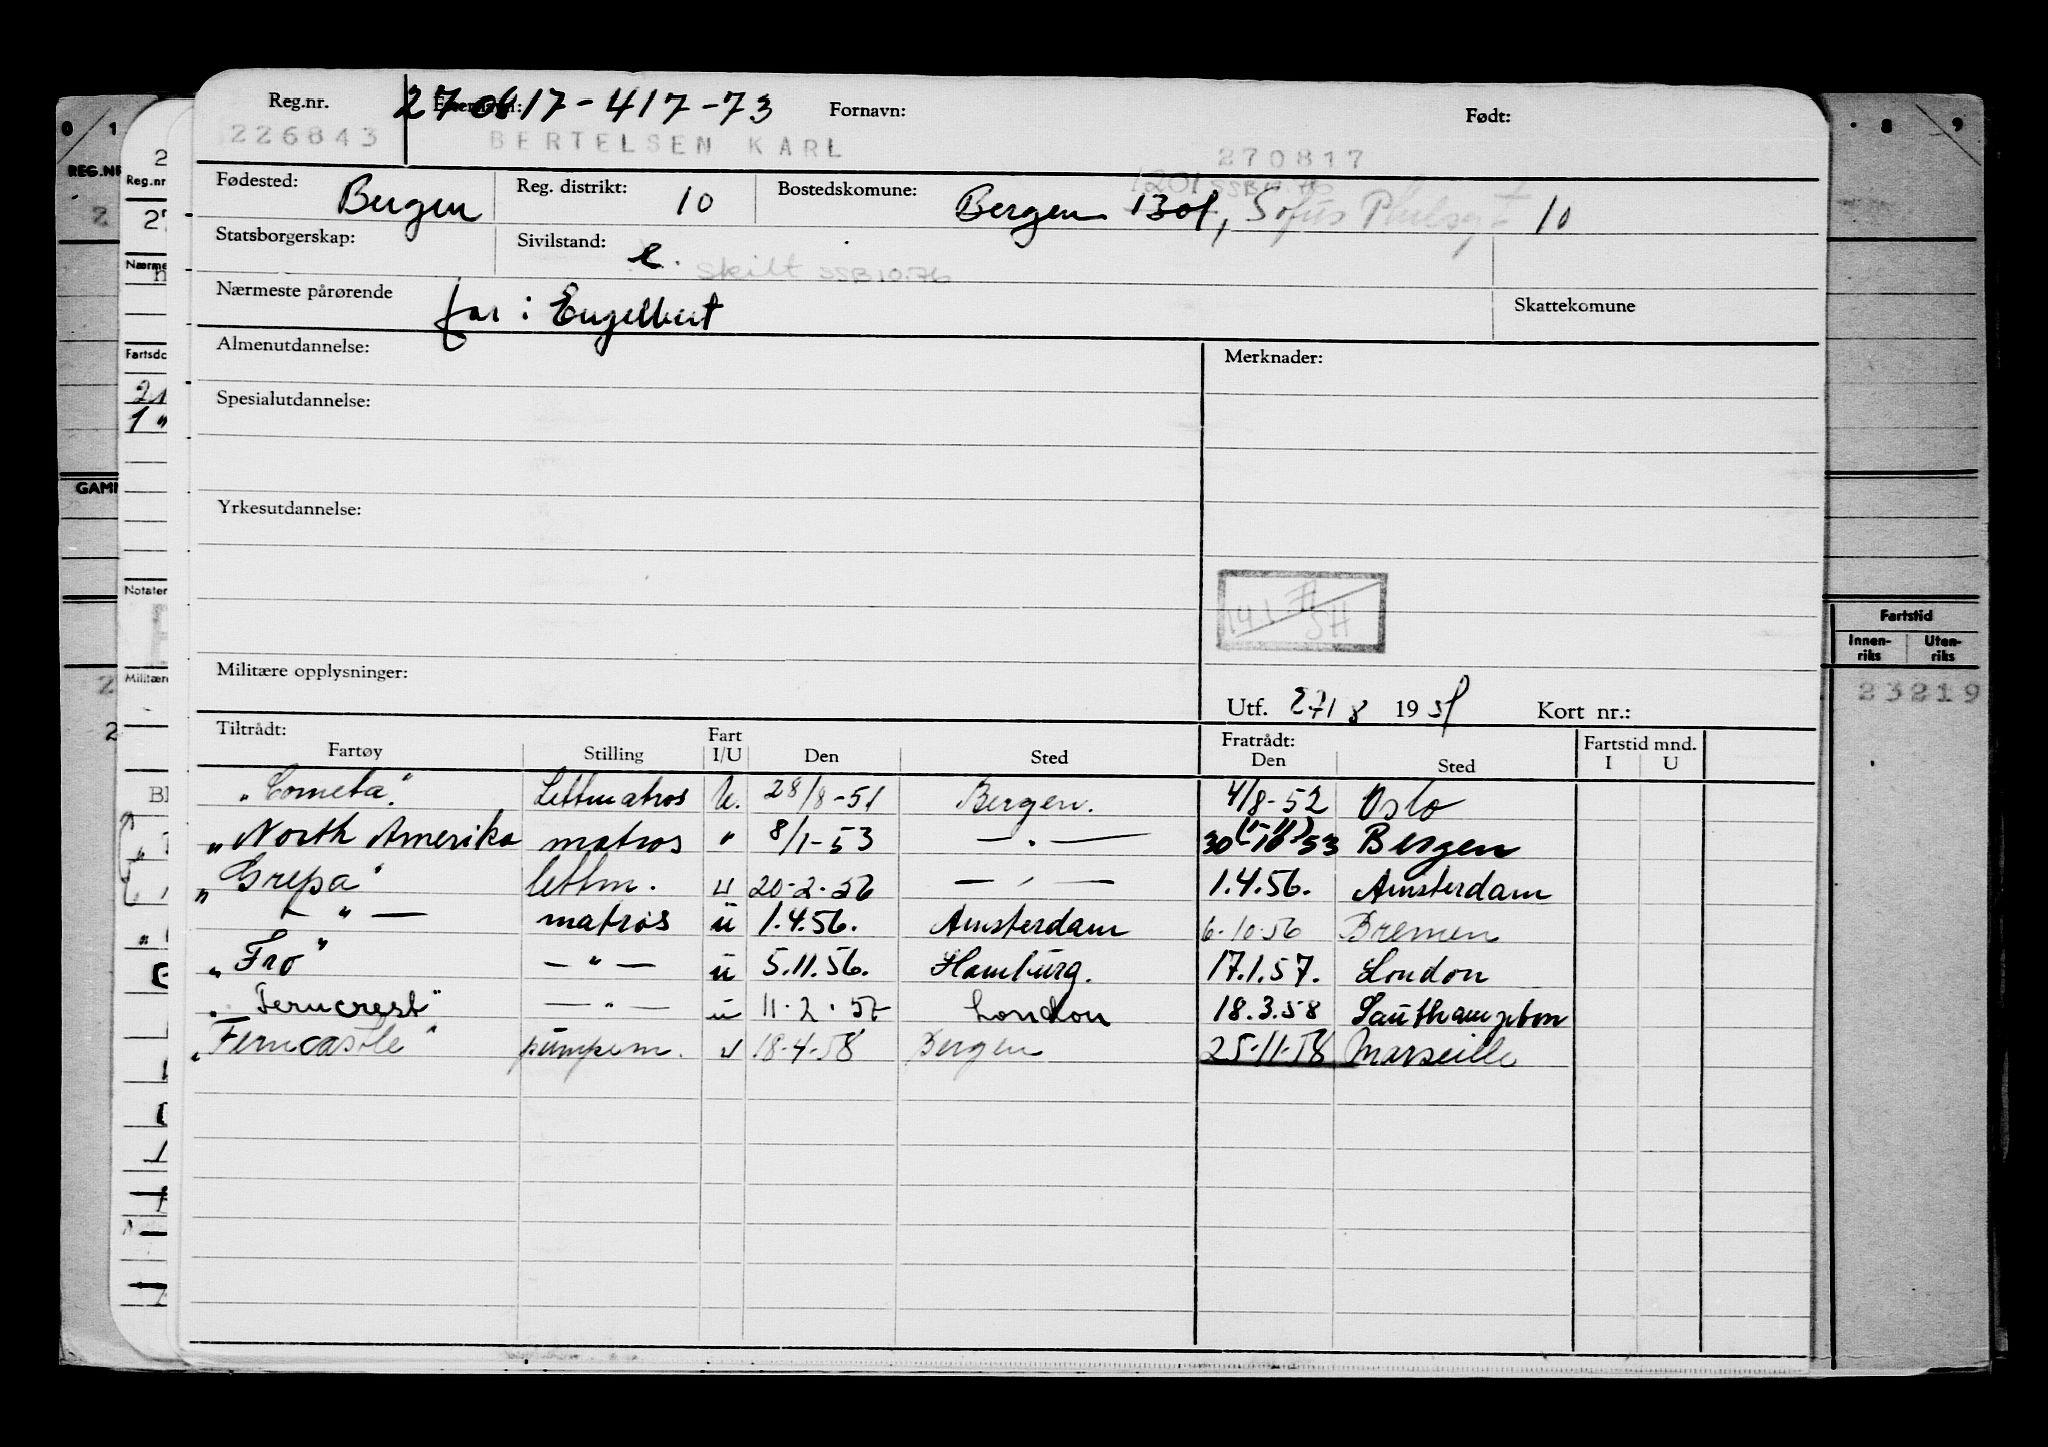 Reg.nr. Etternavn: 270817-417-73 Fornavn: Født:
226843 BERTELSEN KARL 270817
Fødested: Bergen Reg. distrikt: 10 Bostedskomune: Bergen 1301, Sofus 10
1201 SSB 10.76
Statsborgerskap: Sivilstand: e. skilt SSB 10.76
Nærmeste pårørende far: Engelbert Skattekomune
Almenutdannelse: Merknader:
Spesialutdannelse:
Yrkesutdannelse:
SH
Militære opplysninger:
Utf. 27/8 1951 Kort nr.:
Tiltrådt: Fratrådt: Fartstid mnd.
Fartøy Stilling Fart I/U Den Sted Den Sted I U
"Cometa" Lettmatros U. 28/8-51 Bergen. 4/8-52 Oslo
"North Amerika matros " 8/1-53 — " — 30-10-53 Bergen
"Grepa" lettm. u 20-2-56 — " — 1.4.56. Amsterdam
— " — matros u 1.4.56. Amsterdam 6-10-56 Bremen
"Fro" — " — u 5.11.56. Hamburg. 17.1.57. London
"Ferncrest" — " — u 11-2-57 London 18.3.58 Southampton
"Ferncastle" pumpem. u 18-4-58 Bergen 25-11-58 Marseille
0 1
REG.NR
Reg.nr
Nærme
Fartsdo
GAMM
Notater
Militære
8 9
Fartstid
Innen-riks Uten-riks
23219